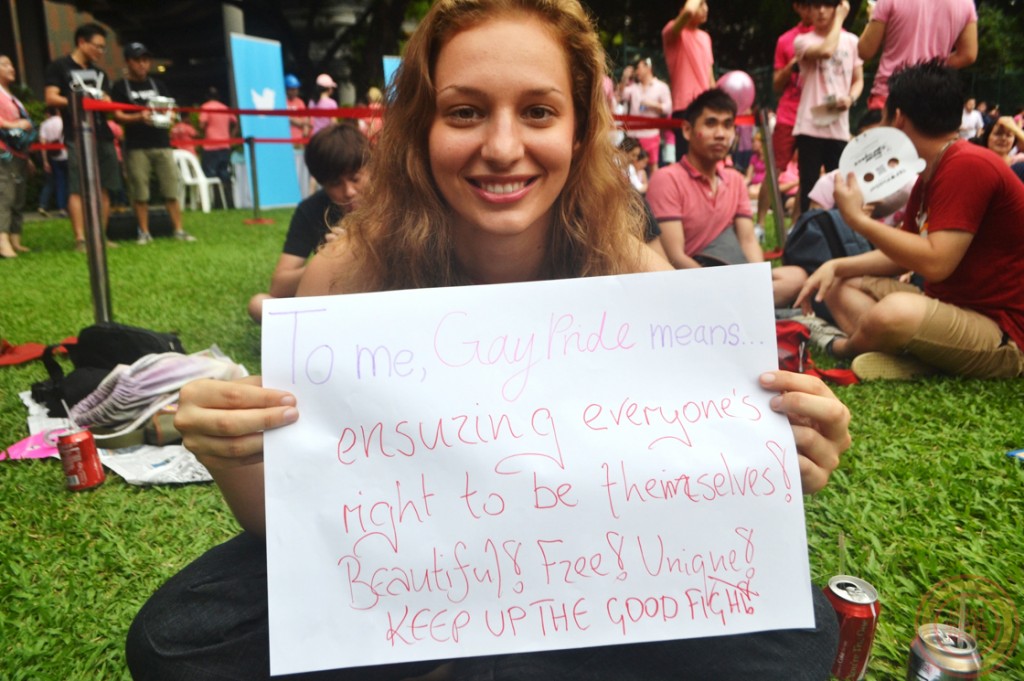 To me, Gay Pride means...
ensuring everyone's
right to be themselves!
Beautiful! Free! Unique!
KEEP UP THE GOOD FIGHT!